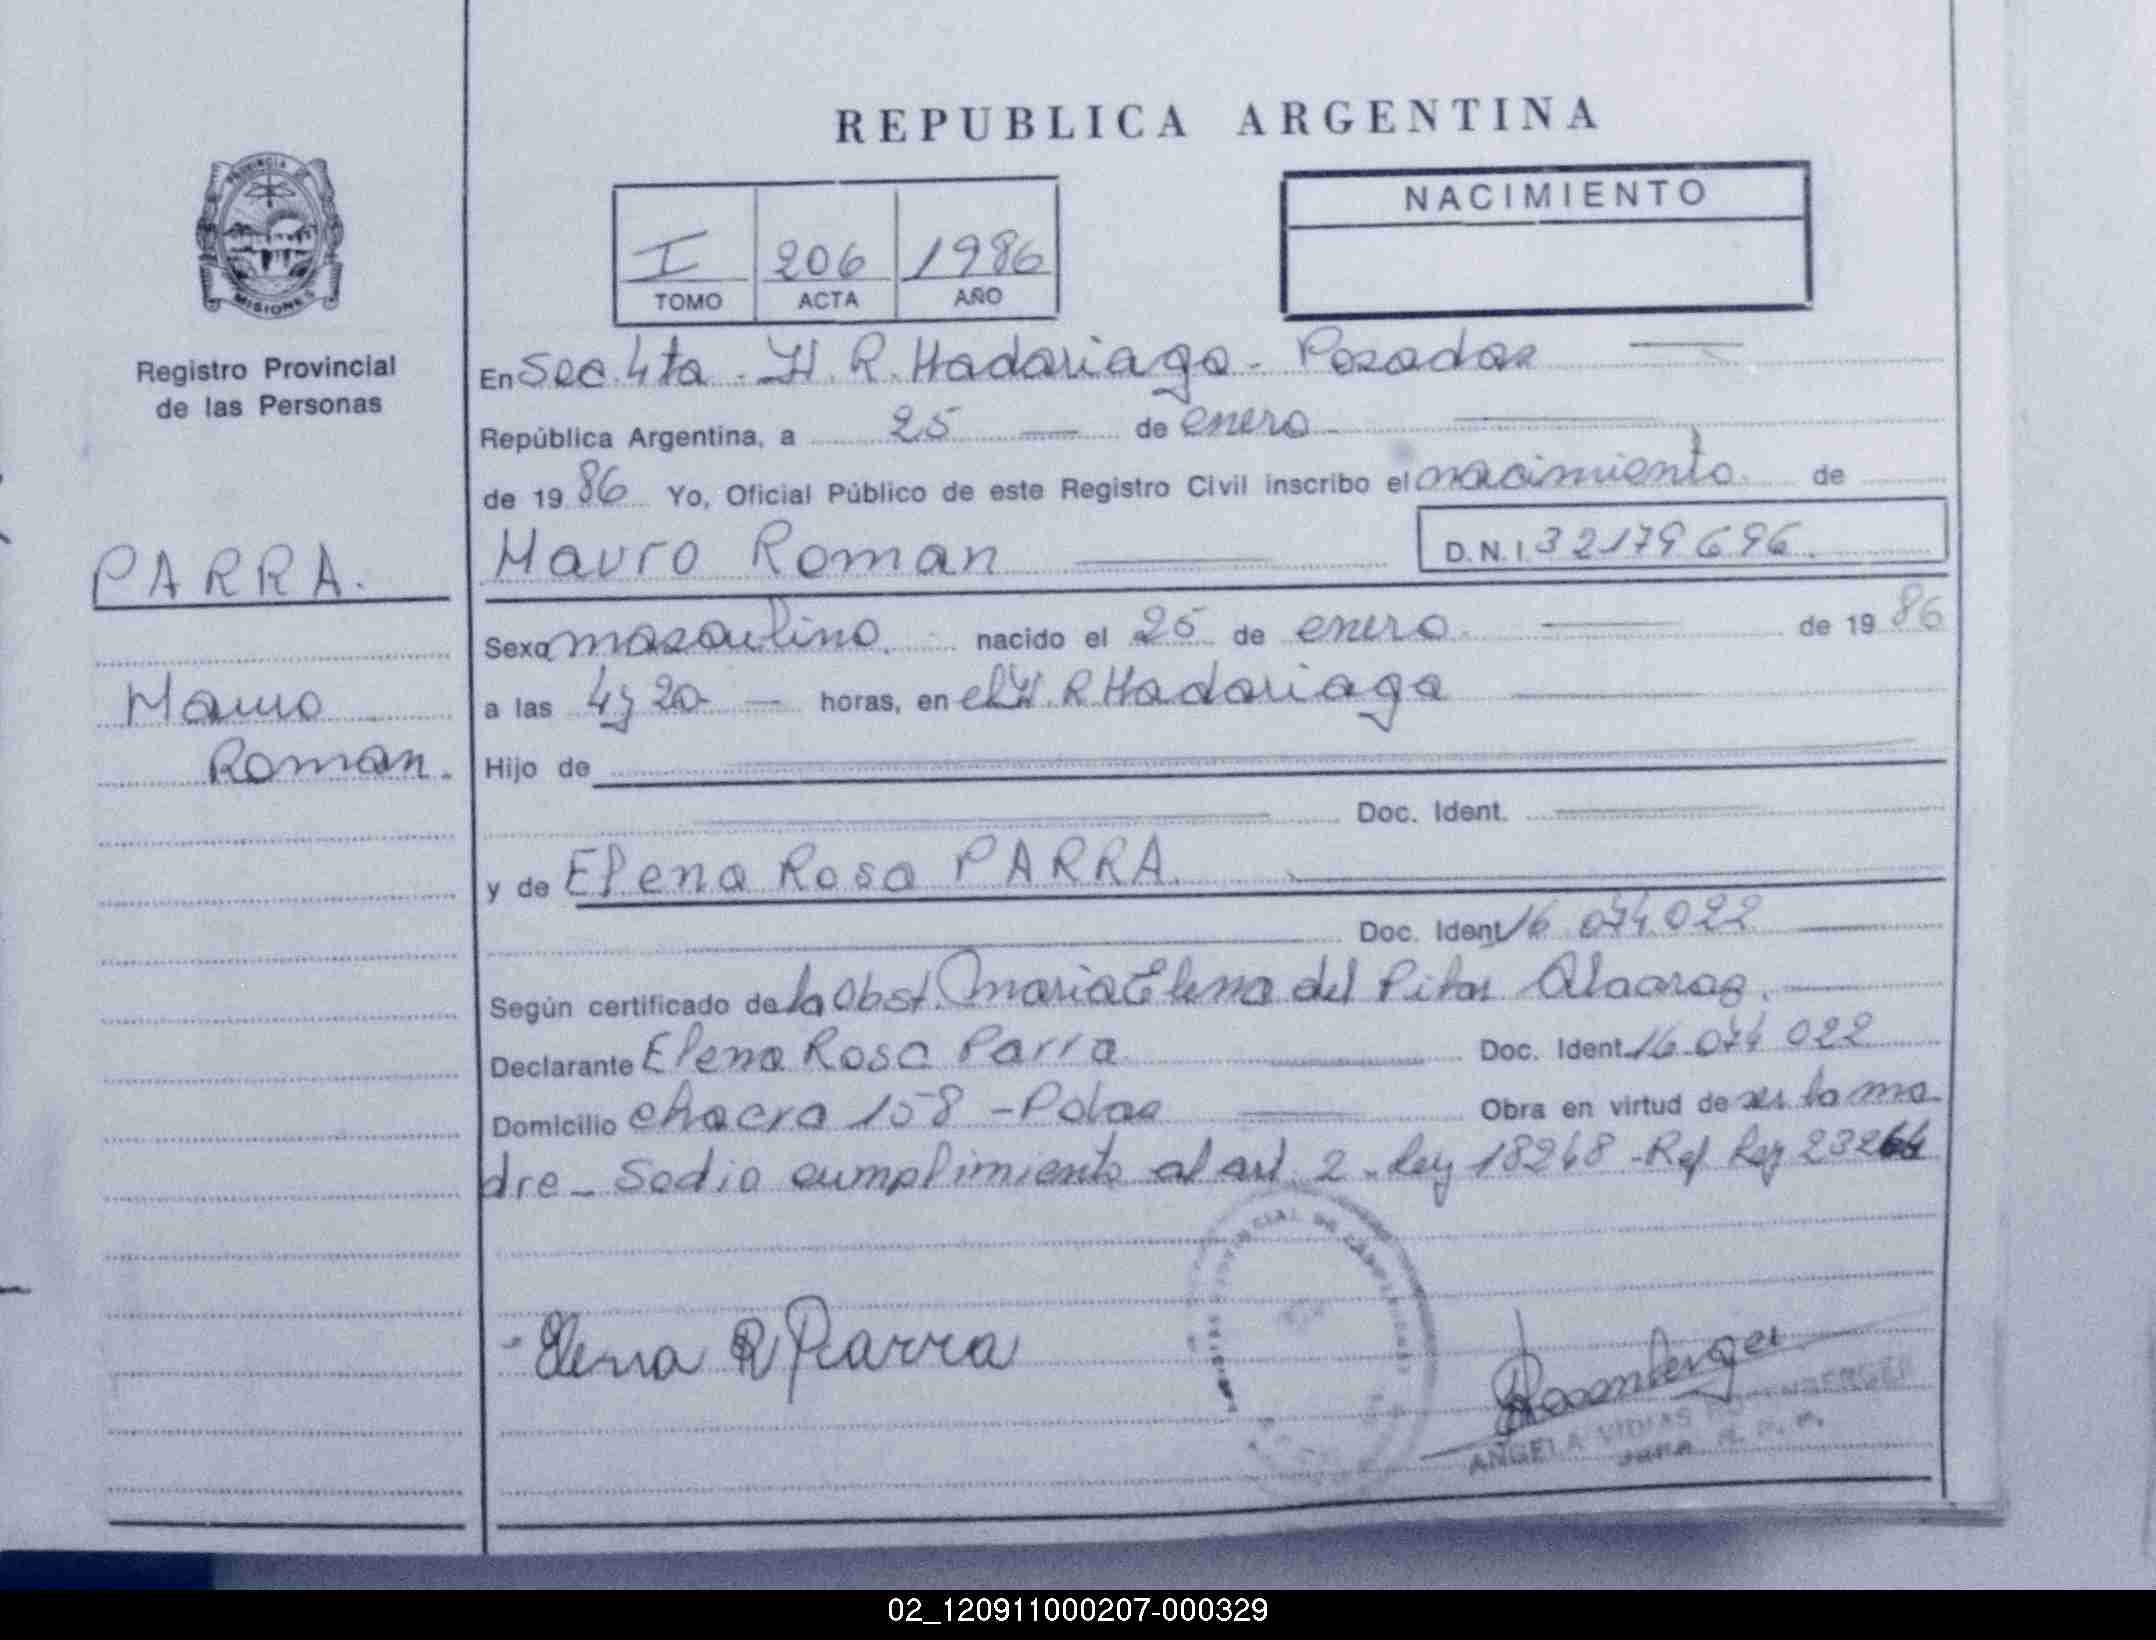 REPUBLICA ARGENTINA
PROVINCIA DE
MISIONES
Registro Provincial
de las Personas
I 206 1986
TOMO ACTA AÑO
NACIMIENTO
PARRA.
Mauro
Roman.
En Sec. 4ta. H. R. Madariaga - Posadas
República Argentina, a 25 de enero
de 1986 Yo, Oficial Público de este Registro Civil inscribo el nacimiento de
Mauro Roman D.N.I. 32179696.
Sexo masculino. nacido el 25 de enero. de 1986
a las 4 y 20 horas, en el H. R Madariaga
Hijo de
Doc. Ident.
y de Elena Rosa PARRA.
Doc. Ident 16 074 022
Según certificado de la Obst. Maria Elena del Pilar
Declarante Elena Rosa Parra Doc. Ident. 16 074 022
Domicilio chacra 158 - Pdas Obra en virtud de ser la ma
dre - Se dio cumplimiento al art. 2 - Ley 18248 - Ref Ley 23264
Elena R Parra
ANGELA ROSENBERGER
02_120911000207-000329